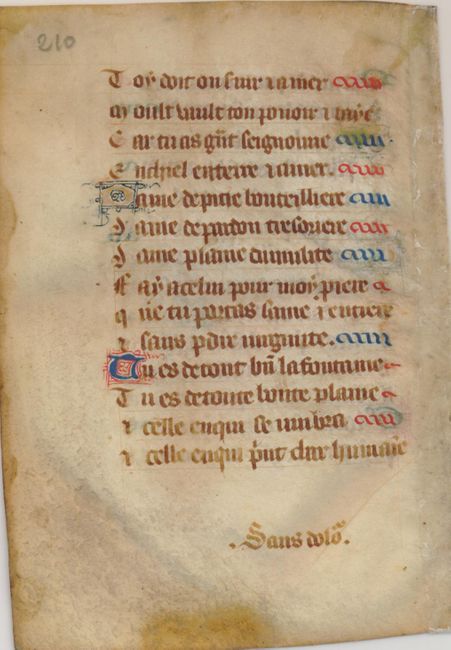 210
Toy doit on seruir ⁊ amer
Moult vault ton pouoir ⁊ taye
Car tu as gñt seignourie
En ciel en terre ⁊ en mer.
Dame de pitie bouteilliere
Dame de pardon tresoriere
Dame plaine dumilite
Fay a celui pour moy piere
que tu portas saine ⁊ entiere
⁊ sans pdre virginite.
Tu es de tout bñ la fontaine
Tu es de toute bonte plaine
⁊ celle en qui se aumbra
⁊ celle en qui p̃nt char humaĩe
. Sans dolõ.